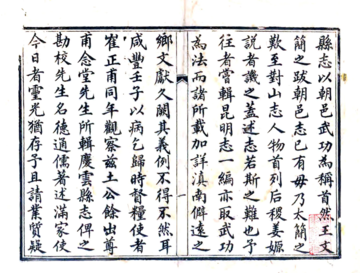 縣志以朝邑武功為稱首然王文
簡之跋朝邑志已有毋乃太簡之
歎至對山志人物首列后稷姜嫄
說者譏之蓋述志若斯之難也予
往者嘗輯昆明志一編亦取武功
為法而諸所載加詳滇南僻遠之
鄉文獻久闕其義例不得不然耳
咸豐壬子以病乞歸時督糧使者
崔正甫同年觀察茲土公餘出尊
甫念堂先生所輯慶雲縣志俾之
勘校先生名德通儒著述滿家使
今日者靈光猶存予且請業質疑